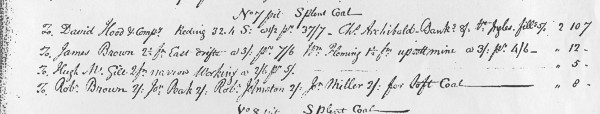 No 7 pit Splent Coal
To David Hood & Compy Reding 32.4 S: @ 1/2 pr 37/7 — Chs Archibald Bank 8/. Ja: Ingles fills 5/. 2 10 7
To James Brown 2: fm East drift @ 3/: pr 7/6 Wm Fleming 1: fm upsett mine @ 3/: pr 4/6 — " 12 -
To Hugh McGill 2 fm narrow Working @ 2/6 pr 5/. " 5 -
To Robt Brown 2/: Jon Peak 2/: Robt Jolmston 2/: Jon Miller 2/: for Soft Coal — " 8 -
No 8 pit Splent Coal